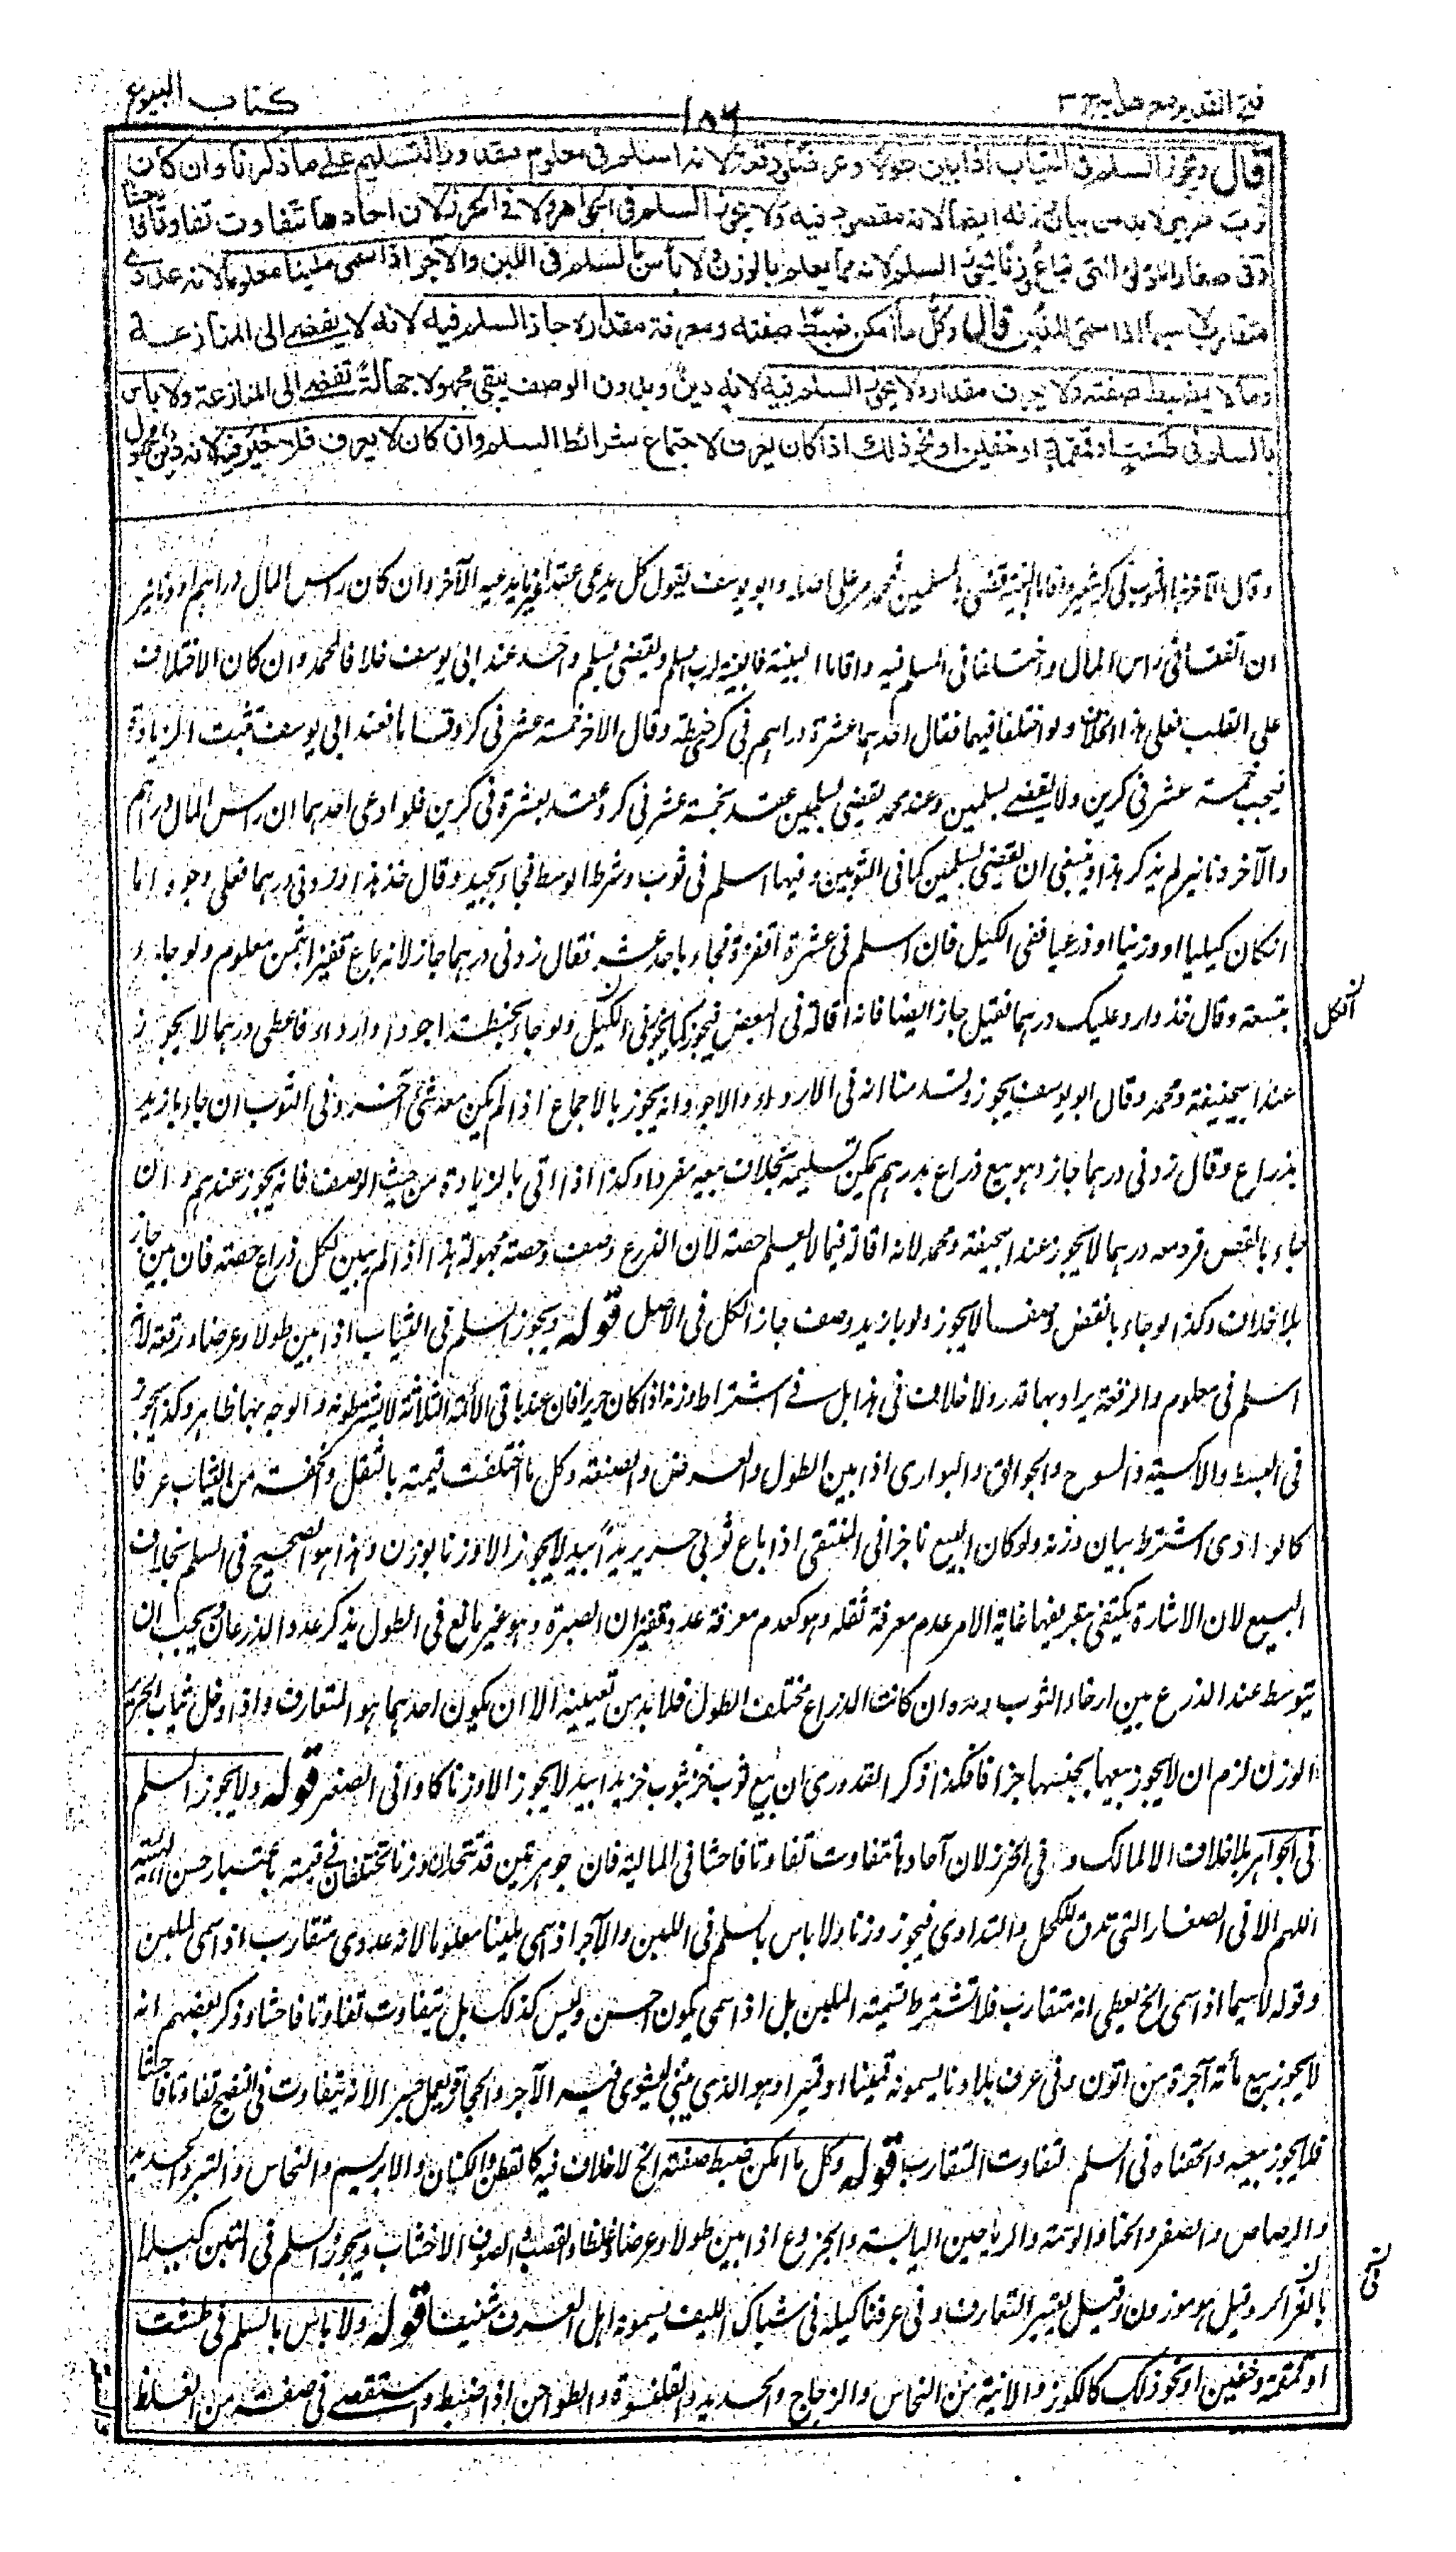 فتح القدير مع هدايه ج ٣
١٥٦
كتاب البيوع
قال ويجوز السلم في الثياب اذا بين طولا وعرضا ورقعة لانه اسلم في معلوم مقدور التسليم على ما ذكرنا وان كان
ثوب حرير لابد من بيان وزنه ايضا لانه مقصود فيه ولا يجوز السلم في الجواهر ولا في الخرز لان احادها تتفاوت تفاوتا فاحشا
وفي صغار اللؤلؤ التي تباع وزنا يجوز السلم لانه مما يعلم بالوزن ولا بأس بالسلم في اللبن والآجر اذا سمى ملبنا معلوما لانه عددي
متقارب لا سيما اذا سمى الملبن قال وكل ما امكن ضبط صفته ومعرفة مقداره جاز السلم فيه لانه لا يفضي الى المنازعة
وما لا يضبط صفته ولا يعرف مقداره لا يجوز السلم فيه لانه دين وبدون الوصف يبقى مجهولا جهالة تفضي الى المنازعة ولا بأس
بالسلم في طست او قمقمة او خفين او نحو ذلك اذا كان يعرف لاجتماع شرائط السلم وان كان لا يعرف فلا خير فيه لانه دين مجهول
وقال الآخر هذا الثوب في كر شعير واقاما البينة قضى بسلمين محمد مر على اصله وابو يوسف يقول كل يدعي عقدا غير ما يدعيه الآخر وان كان راس المال دراهم او دنانير
ان اتفقا في راس المال واختلفا في المسلم فيه واقاما البينة فالبينة لرب السلم ويقضى بسلم واحد عند ابي يوسف خلافا لمحمد وان كان الاختلاف
على القلب فعلى هذا الخلاف ولو اختلفا فيهما فقال احدهما عشرة دراهم في كر حنطة وقال الآخر خمسة عشر في كر وقاما فعند ابي يوسف تثبت الزيادة
فيجب خمسة عشر في كرين ولا يقضى بسلمين وعند محمد يقضى بسلمين عقد بخمسة عشر في كر وعقد بعشرة في كرين فلو ادعى احدهما ان راس المال دراهم
والآخر دنانير لم يذكر هذا وينبغي ان يقضى بسلمين كما في الثوبين وفيها اسلم في ثوب وشرط الوسط فجاء بجيد وقال خذ هذا وزدني درهما فعلى وجوه اما
ان كان كيليا او وزنيا او ذرعيا ففي الكيل فان اسلم في عشرة اقفزة فجاء باحد عشر فقال زدني درهما جاز لانه باع قفيزا بثمن معلوم ولو جاء
بتسعة وقال خذ وارد عليك درهما فقبل جاز ايضا فانه اقالة في البعض فيجوز كما يجوز في الكل ولو جاء بحنطة اجود او اردأ فاعطى درهما لا يجوز
عند ابي حنيفة ومحمد وقال ابو يوسف يجوز وقدمنا انه في الاردأ والاجود انه يجوز بالاجماع اذا لم يكن معه شيء آخر وفي الثوب ان جاء بازيد
بذراع وقال زدني درهما جاز وهو بيع ذراع بدرهم يمكن تسليمه بخلاف بيعه مفردا وكذا اذا اتى بالزيادة من حيث الوصف فانه يجوز عندهم وان
جاء بانقص فرد معه درهما لا يجوز عند ابي حنيفة ومحمد لانه اقالة فيما لا يعلم حصته لان الذرع وصف وحصته مجهولة هذا اذا لم يبين لكل ذراع حصته فان بين جاز
بلا خلاف وكذا لو جاء بانقص وصفا لا يجوز ولو بازيد وصف جاز الكل في الاصل قوله ويجوز السلم في الثياب اذا بين طولا وعرضا ورقعة لانه
اسلم في معلوم والرقعة يراد بها قدر ولا خلاف في هذا بل في اشتراط وزنه اذا كان حريرا فان عند باقي الائمة الثلاثة لا يشترطونه والوجه بها ظاهر وكذا يجوز
في البسط والاكسية والمسوح والجوالق والبواري اذا بين الطول والعرض والصنعة وكل ما اختلفت قيمته بالثقل والخفة من الثياب عرفا
كالوذاري اشترط بيان وزنه ولو كان البيع ناجزا في المنتقى اذا باع ثوبي حرير يدا بيد لا يجوز الا وزنا بوزن وهذا هو الصحيح في السلم بخلاف
البيع لان الاشارة يكتفى بتعريفها غاية الامر عدم معرفة ثقله وهو كعدم معرفة عدد قفزان الصبرة وهو غير مانع في الطول يذكر عدد الذرعان ويجب ان
يتوسط عند الذرع بين ارخاء الثوب ومده وان كانت الذراع مختلف الطول فلابد من تعيينه الا ان يكون احدهما هو المتعارف واذا دخل ثياب الحرير
الوزن لزم ان لا يجوز بيعها بجنسها جزافا فكذا ذكر القدوري ان بيع ثوب خز بثوب خز يدا بيد لا يجوز الا وزنا كاواني الصفر قوله ولا يجوز السلم
في الجواهر بلا خلاف الا لمالك ولا في الخرز لان آحادها تتفاوت تفاوتا فاحشا في المالية فان جوهرتين قد تتحدان وزنا وتختلفان في قيمته باعتبار حسن الهيئة
اللهم الا في الصغار التي تدق للكحل والتداوي فيجوز وزنا ولا باس بالسلم في اللبن والآجر اذا سمى ملبنا معلوما لانه عددي متقارب اذا سمى الملبن
وقوله لا سيما اذا سمى الخ يعطي انه متقارب فلا تشترط تسمية الملبن بل اذا سمى يكون احسن وليس كذلك بل يتفاوت تفاوتا فاحشا وذكر بعضهم انه
لا يجوز بيع مأئة آجرة من اتون وفي عرف بلادنا يسمونه قمينا او قميرا وهو الذي يبنى ليشوى فيه الآجر والحجارة ويعمل جير الانه يتفاوت في النضج تفاوتا فاحشا
فلا يجوز بيعه والحقناه في السلم لتفاوت المتقارب قوله وكل ما امكن ضبط صفته الخ لا خلاف فيه كالقطن والكتان والابريسم والنحاس والتبر والحديد
والرصاص والصفر والحنا والوسمة والرياحين اليابسة والجذوع اذا بين طولا وعرضا وغلظا والقصب والصوف الاخشاب ويجوز السلم في التبن كيلا
بالغرائر وقيل هو موزون وقيل يعتبر التعارف وفي عرفنا كيله في شباك الليف يسمونه اهل العرف شنيفا قوله ولا باس بالسلم في طست
او قمقمة وخفين او نحو ذلك كالكوز والآنية من النحاس والزجاج والحديد والقلنسوة والطواحن اذا ضبط واستقصى في صفته من الغلظ